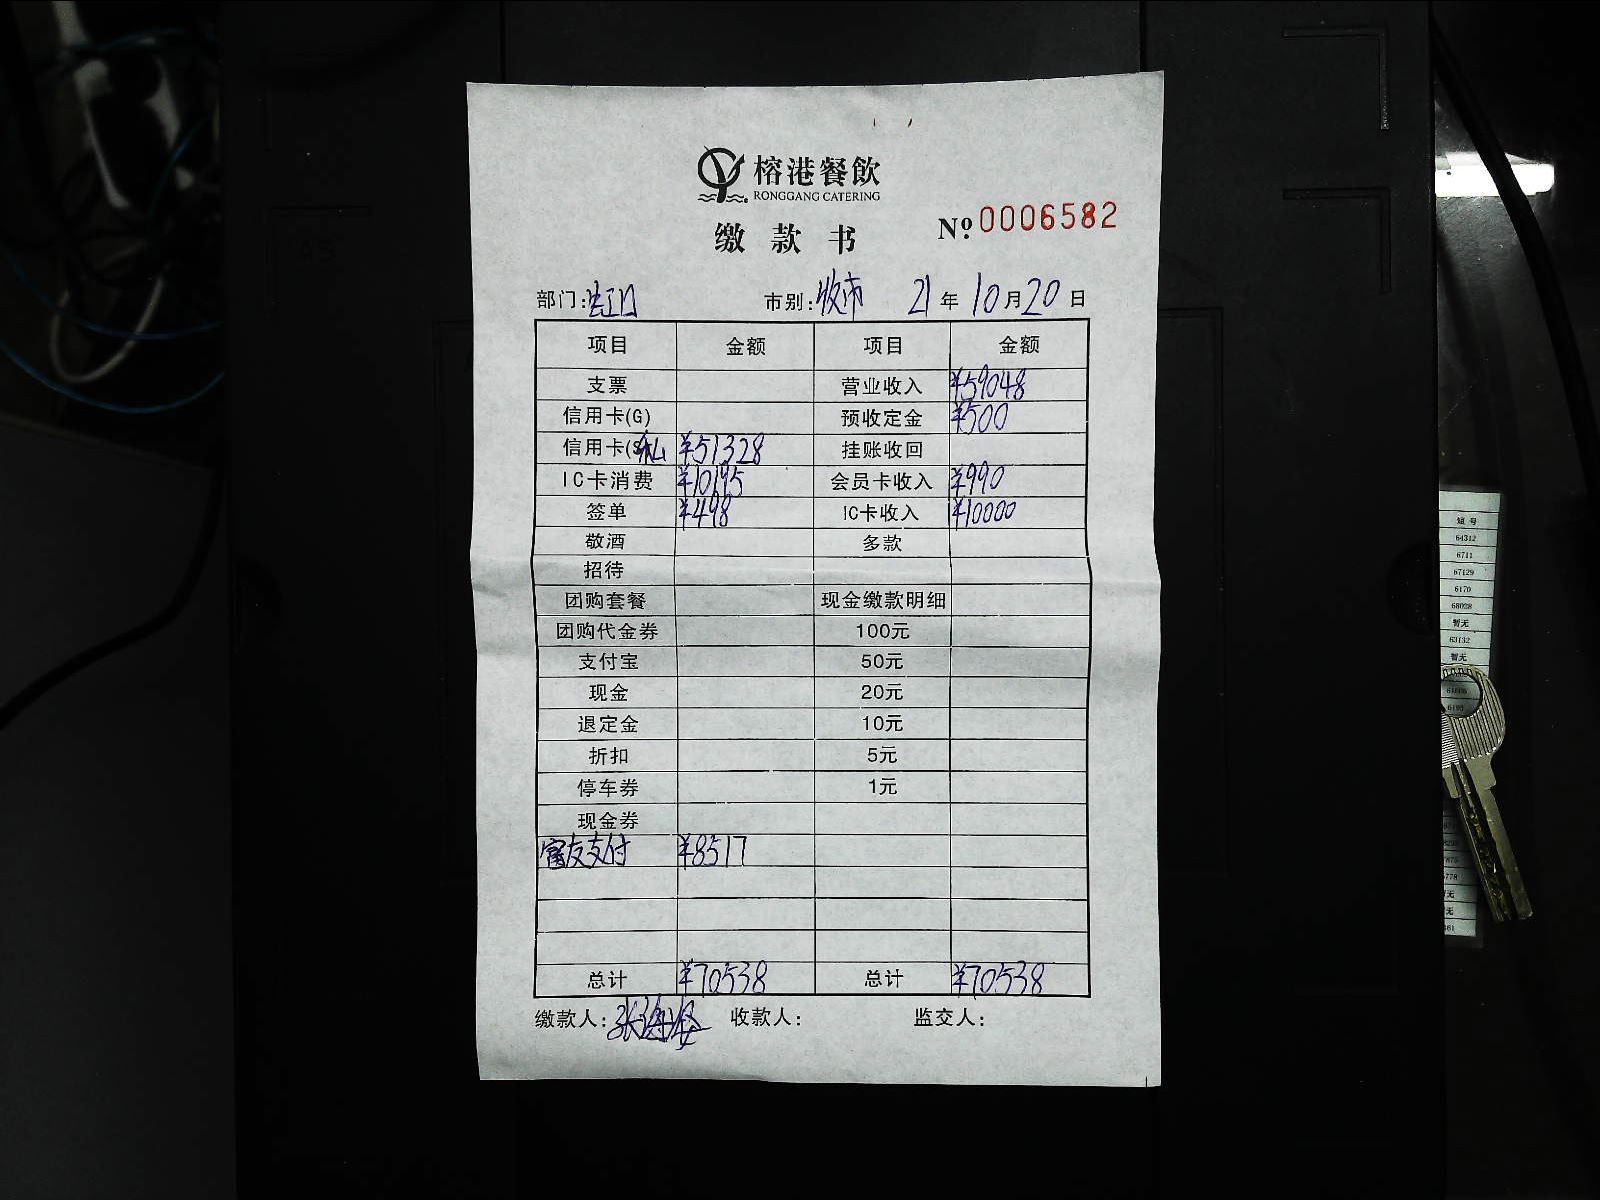 榕港餐飲
RONGGANG CATERING
缴款书 №0006582
部门: 市别:收市 21年10月20日
项目 金额 项目 金额
支票 营业收入 ¥59048
信用卡(G) 预收定金 ¥500
信用卡(S ¥51328 挂账收回
IC卡消费 ¥10195 会员卡收入 ¥990
签单 ¥498 IC卡收入 ¥10000
敬酒 多款
招待
团购套餐 现金缴款明细
团购代金券 100元
支付宝 50元
现金 20元
退定金 10元
折扣 5元
停车券 1元
现金券
富友支付 ¥8517
总计 ¥70538 总计 ¥70538
缴款人: 收款人: 监交人:
短号
64312
6711
67129
6170
68038
暂无
63132
暂无